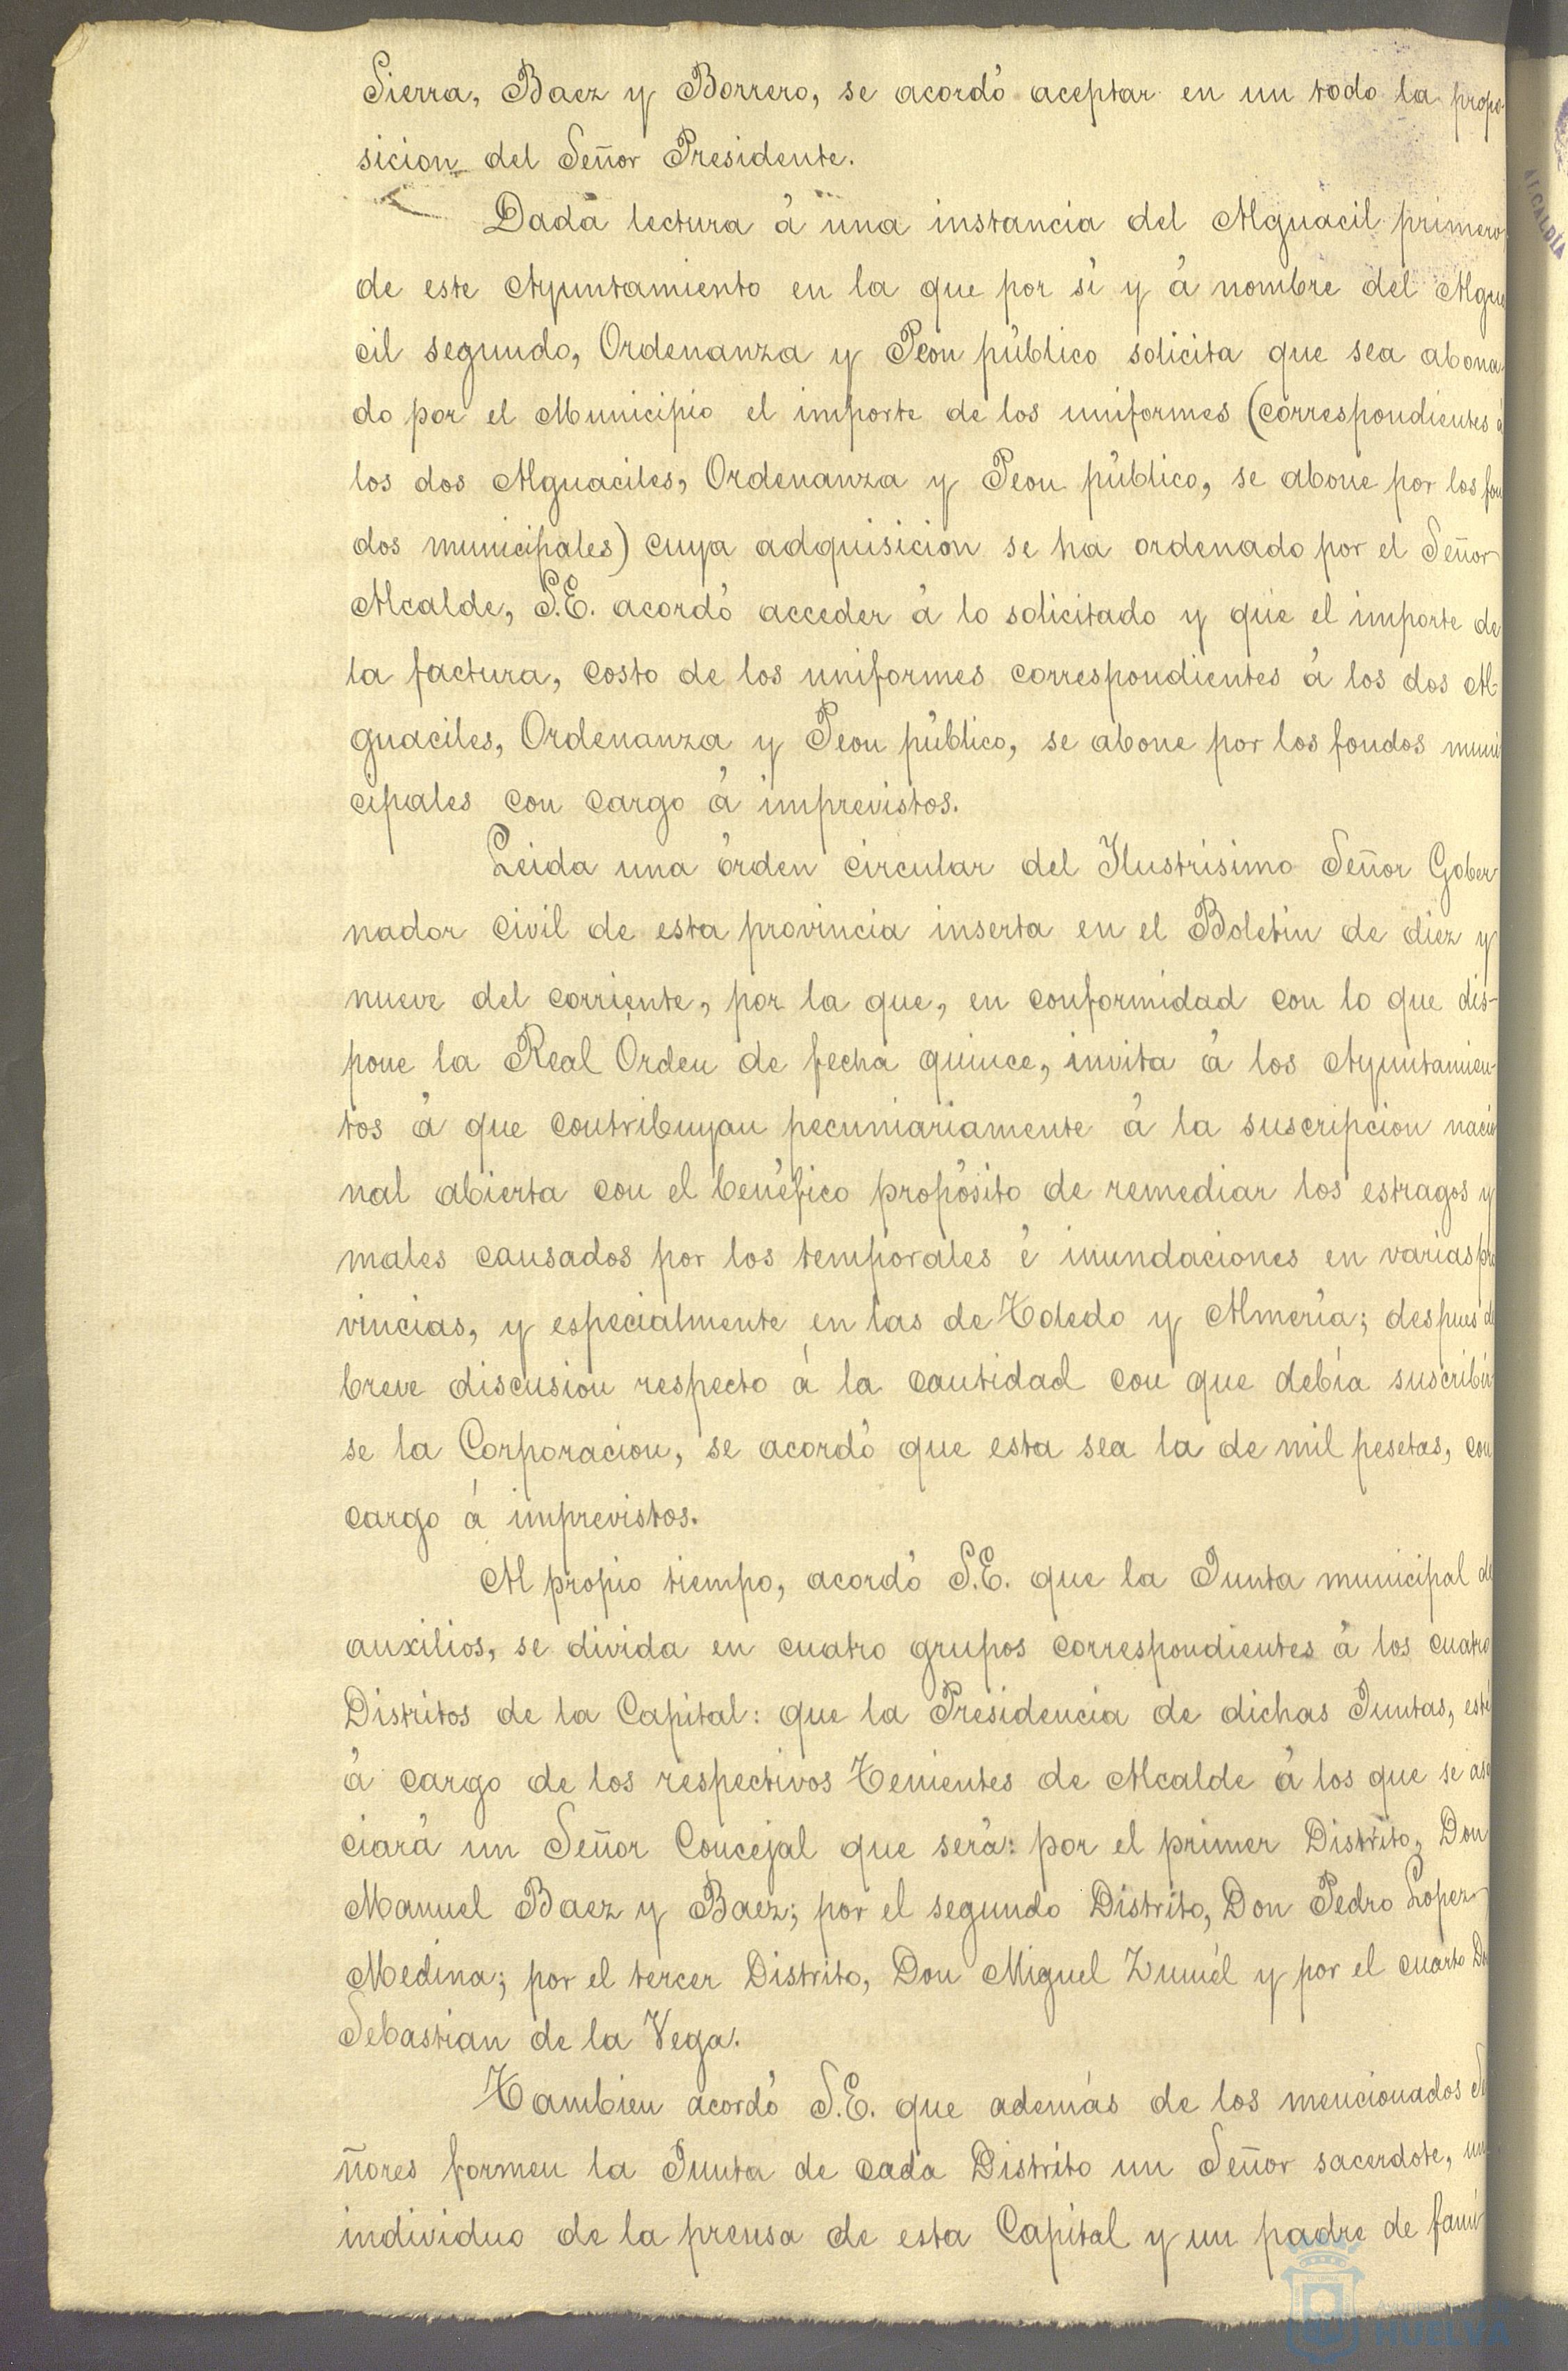 Sierra, Baez y Borrero, se acordó aceptar en un todo la propo-
sicion del Señor Presidente.
Dada lectura á una instancia del Alguacil primero
de este Ayuntamiento en la que por sí y á nombre del Algua
cil segundo, Ordenanza y Peon público solicita que sea abona
do por el Municipio el importe de los uniformes (correspondientes á
los dos Alguaciles, Ordenanza y Peon público, se abone por los fon
dos municipales) cuya adquisicion se ha ordenado por el Señor
Alcalde, S.E. acordó acceder á lo solicitado y que el importe de
la factura, costo de los uniformes correspondientes á los dos Al-
guaciles, Ordenanza y Peon público, se abone por los fondos muni
cipales con cargo á imprevistos.
Leida una órden circular del Ilustrísimo Señor Gober
nador civil de esta provincia inserta en el Boletin de diez y
nueve del corriente, por la que, en conformidad con lo que dis-
pone la Real Orden de fecha quince, invita á los Ayuntamien-
tos á que contribuyan pecuniariamente á la suscripcion nacio
nal abierta con el benéfico propósito de remediar los estragos y
males causados por los temporales é inundaciones en varias pro
vincias, y especialmente en las de Toledo y Almería; despues de
breve discusion respecto á la cantidad con que debía suscribir
se la Corporacion, se acordó que esta sea la de mil pesetas, con
cargo á imprevistos.
Al propio tiempo, acordó S.E. que la Junta municipal de
auxilios, se divida en cuatro grupos correspondientes á los cuatro
Distritos de la Capital: que la Presidencia de dichas Juntas, esté
á cargo de los respectivos Tenientes de Alcalde á los que se aso
ciará un Señor Concejal que será: por el primer Distrito, Don
Manuel Baez y Baez; por el segundo Distrito, Don Pedro Lopez
Medina; por el tercer Distrito, Don Miguel Zunél y por el cuarto Don
Sebastian de la Vega.
Tambien acordó S.E. que además de los mencionados Se
ñores formen la Junta de cada Distrito un Señor sacerdote, un
individuo de la prensa de esta Capital y un padre de fami
ALCALDÍA
HUELVA